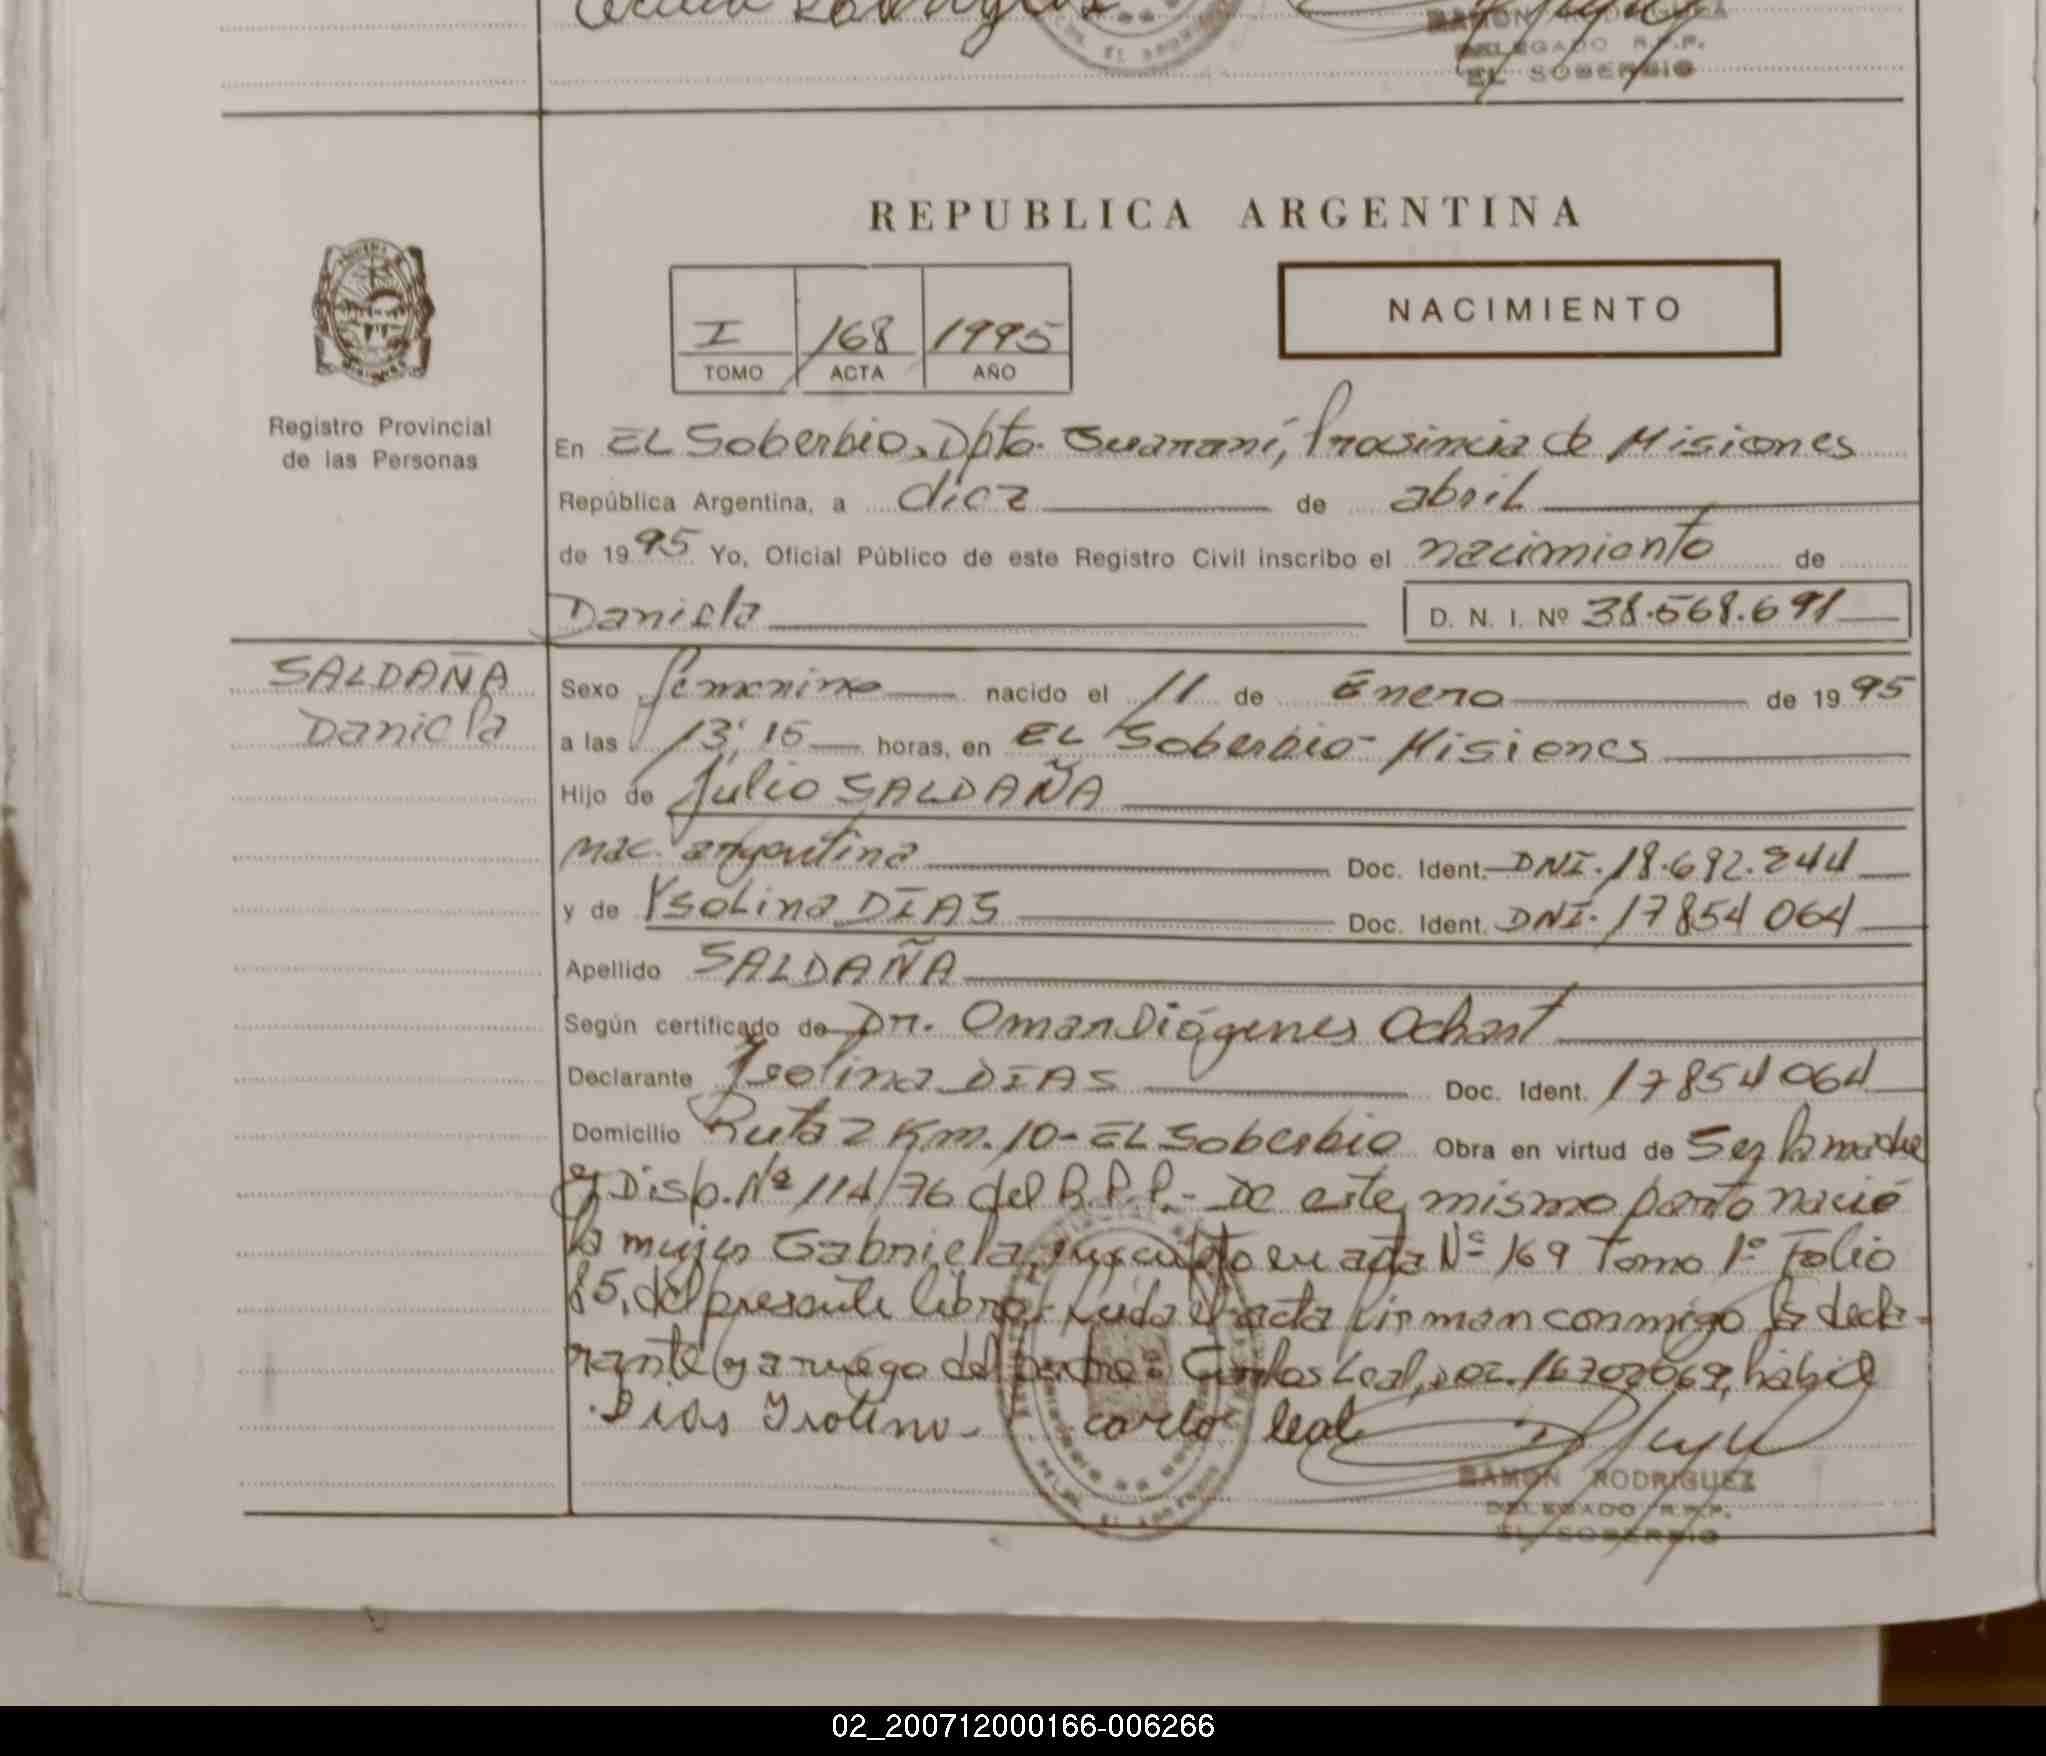 RAMON RODRIGUEZ
DELEGADO R.P.P.
EL SOBERBIO
REPUBLICA ARGENTINA
NACIMIENTO
I 168 1995
TOMO ACTA AÑO
Registro Provincial
de las Personas
En EL Soberbio, Dpto. Guaraní, Provincia de Misiones
República Argentina, a diez de abril
de 1995 Yo, Oficial Público de este Registro Civil inscribo el nacimiento de
Daniela D. N. I. Nº 38.568.691
SALDAÑA
Daniela
Sexo femenino nacido el 11 de Enero de 1995
a las 13:15 horas, en EL Soberbio - Misiones
Hijo de Julio SALDAÑA
nac. argentina Doc. Ident. DNI. 18.692.244
y de Ysolina DIAS Doc. Ident. DNI. 17854064
Apellido SALDAÑA
Según certificado de Dr. Omar Diógenes Ochant
Declarante Ysolina DIAS Doc. Ident. 17854064
Domicilio Ruta 2 Km. 10 - EL Soberbio Obra en virtud de Ser la madre
y Disp. Nº 114/76 del R.P.P.- De este mismo parto nació
la mujer Gabriela, inscripto en acta Nº 169 Tomo 1º Folio
85, del presente libro. Leida el acta firman conmigo la decla-
rante y a ruego del padre: Carlos Leal, DOC. 16702069, hábil
Dias Isolina - carlos leal
RAMON RODRIGUEZ
DELEGADO R.P.P.
EL SOBERBIO
02_200712000166-006266